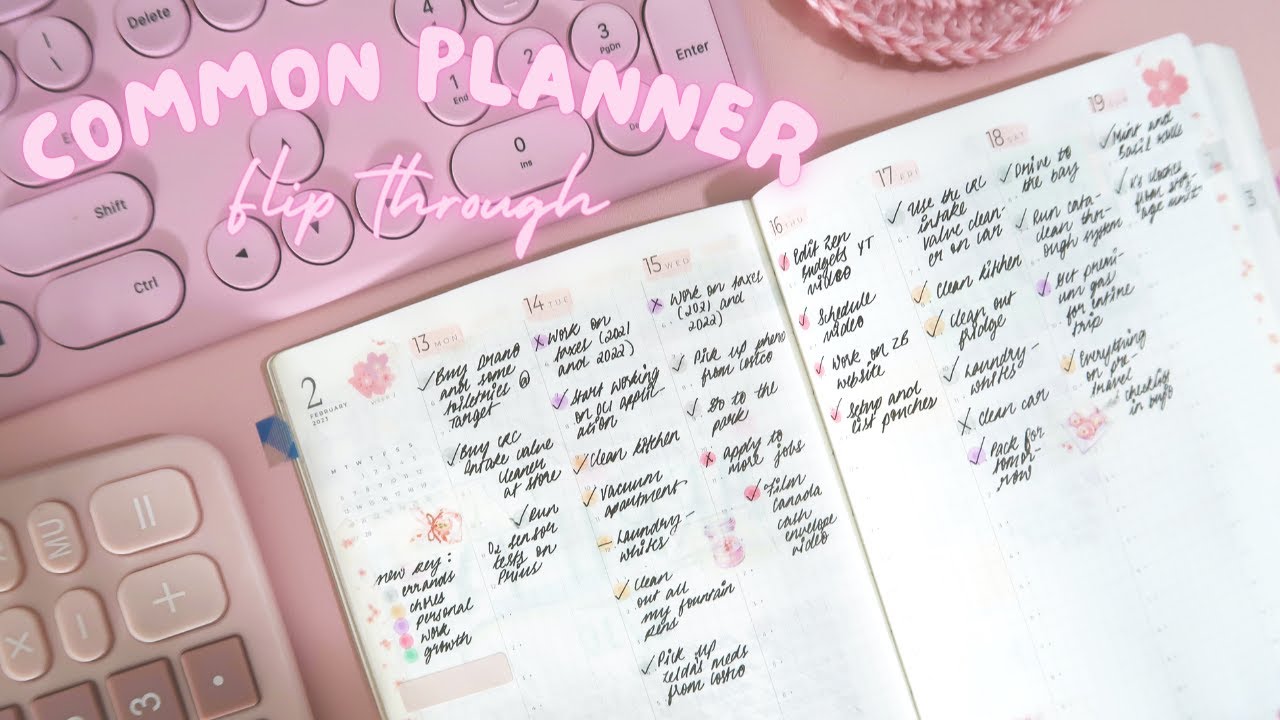 COMMON PLANNER
flip through
Delete
4
3
PgDn
Enter
2
1
End
0
Ins
Shift
Ctrl
MU
+
×
−
3
2
FEBRUARY
2023
WEEK 7
M T W T F S S
new key:
errands
chores
personal
work
growth
13 MON
Buy Drano
and some
toiletries @
Target
Buy CRC
Intake valve
cleaner
at store
Run
O2 sensor
tests on
Prius
14 TUE
Work on
taxes (2021
and 2022)
Start working
on OCI applic-
ation
Clean kitchen
Vacuum
apartment
Laundry-
whites
Clean
out all
my fountain
pens
Pick up
Zeldas meds
from Costco
15 WED
Work on taxes
(2021 and
2022)
Pick up photo
from Costco
Go to the
park
apply to
more jobs
Film
Canada
cash
envelope
video
16 THU
Edit Zen
Budgets YT
video
Schedule
video
Work on ZB
website
Setup and
list pouches
17 FRI
Use the CRC
intake
valve clean-
er on car
Clean kitchen
Clean out
fridge
Laundry-
whites
Clean car
Pack for
tomor-
row
18 SAT
Drive to
the bay
Run cata-
clean thr-
ough system
Get premi-
um gas
for entire
trip
Everything
on pre
travel
checklist
in bujo
19
Mint and
Basil
3